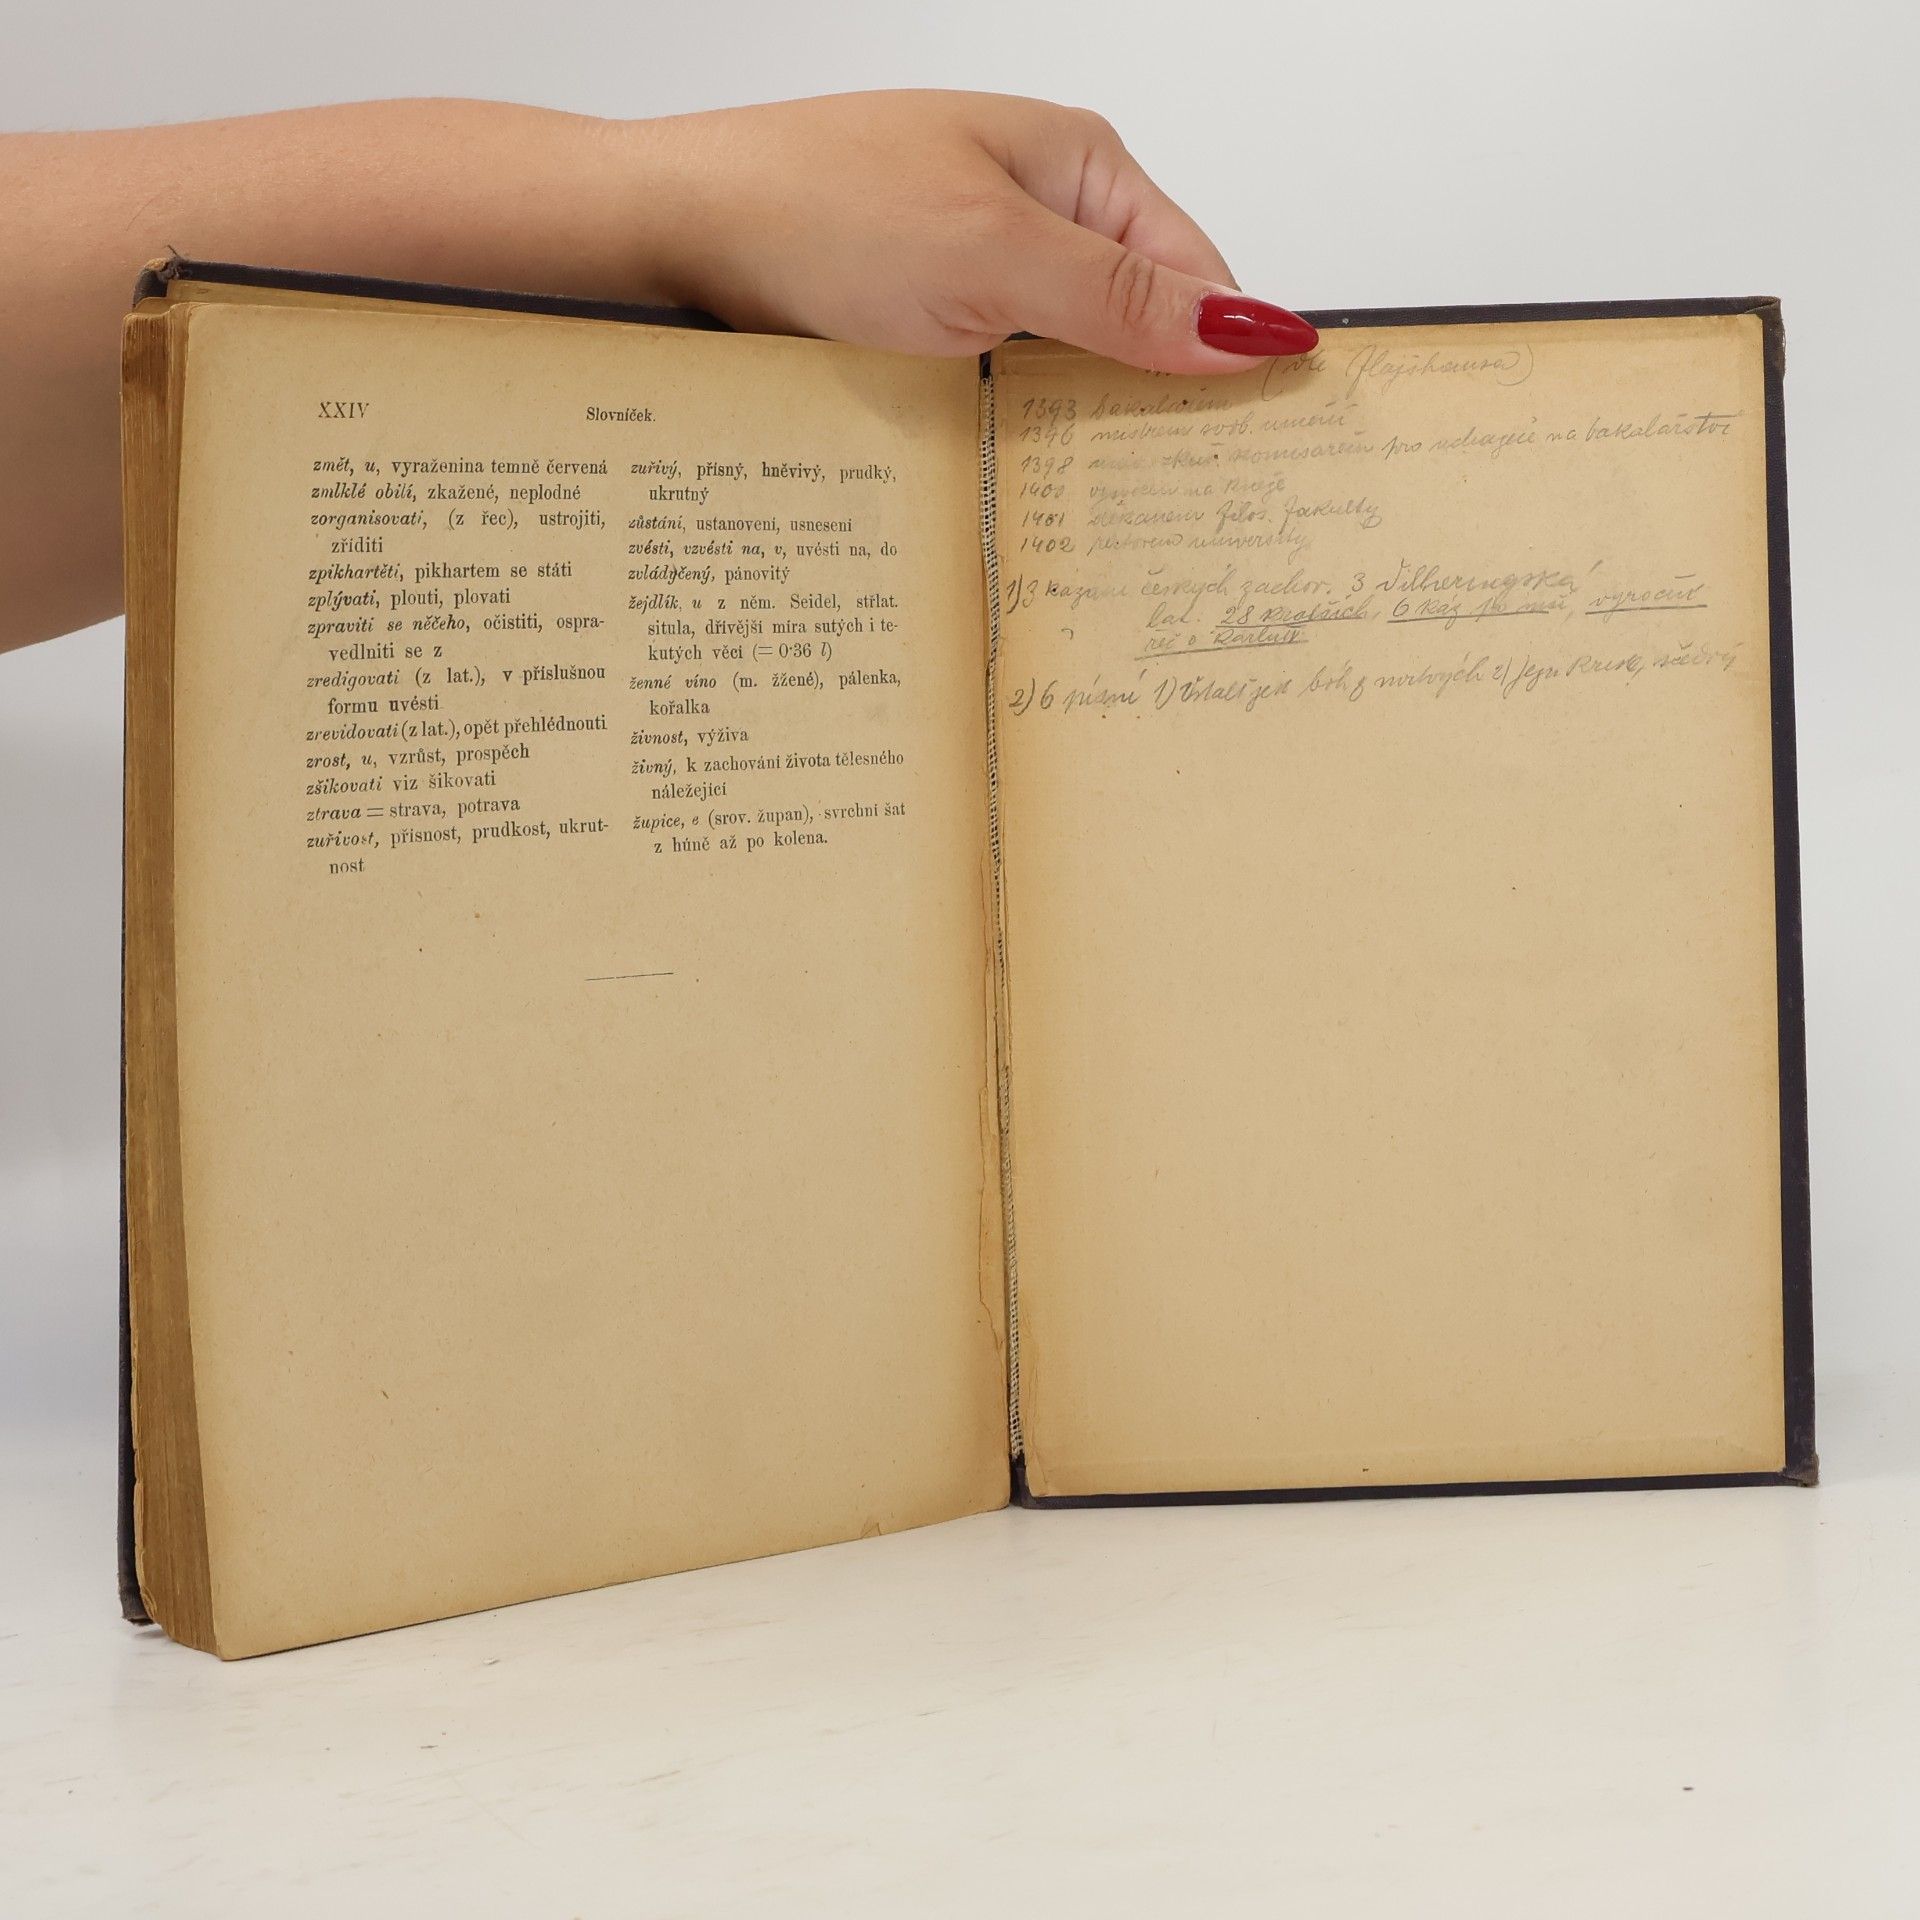 XXIV
Slovníček.
změt, u, vyraženina temně červená
zmlklé obilí, zkažené, neplodné
zorganisovati, (z řec), ustrojiti,
zříditi
zpikhartěti, pikhartem se státi
zplývati, plouti, plovati
zpraviti se něčeho, očistiti, ospra-
vedlniti se z
zredigovati (z lat.), v příslušnou
formu uvésti
zrevidovati (z lat.), opět přehlédnouti
zrost, u, vzrůst, prospěch
zšikovati viz šikovati
ztrava = strava, potrava
zuřivost, přísnost, prudkost, ukrut-
nost
zuřivý, přísný, hněvivý, prudký,
ukrutný
zůstání, ustanovení, usnesení
zvésti, vzvésti na, v, uvésti na, do
zvládyčený, pánovitý
žejdlík, u z něm. Seidel, střlat.
situla, dřívější míra sutých i te-
kutých věcí (= 0·36 l)
ženné víno (m. žžené), pálenka,
kořalka
živnost, výživa
živný, k zachování života tělesného
náležející
župice, e (srov. župan), svrchní šat
z húně až po kolena.
(dle Flajšhansa)
1393 bakalářem
1396 mistrem svob. umění
1398 zkuš. komisařem pro uchazeče na bakalářství
1400 na kněze
1401 děkanem filos. fakulty
1402 rektorem university
1) 3 kázání českých zachov. 3
lat. 28 kratších, 6 káz. výroční
řeč o Karlu
2) 6 písní 1) Vstalť jest bóh z mrtvých 2) Jezu Kriste, ščedrý